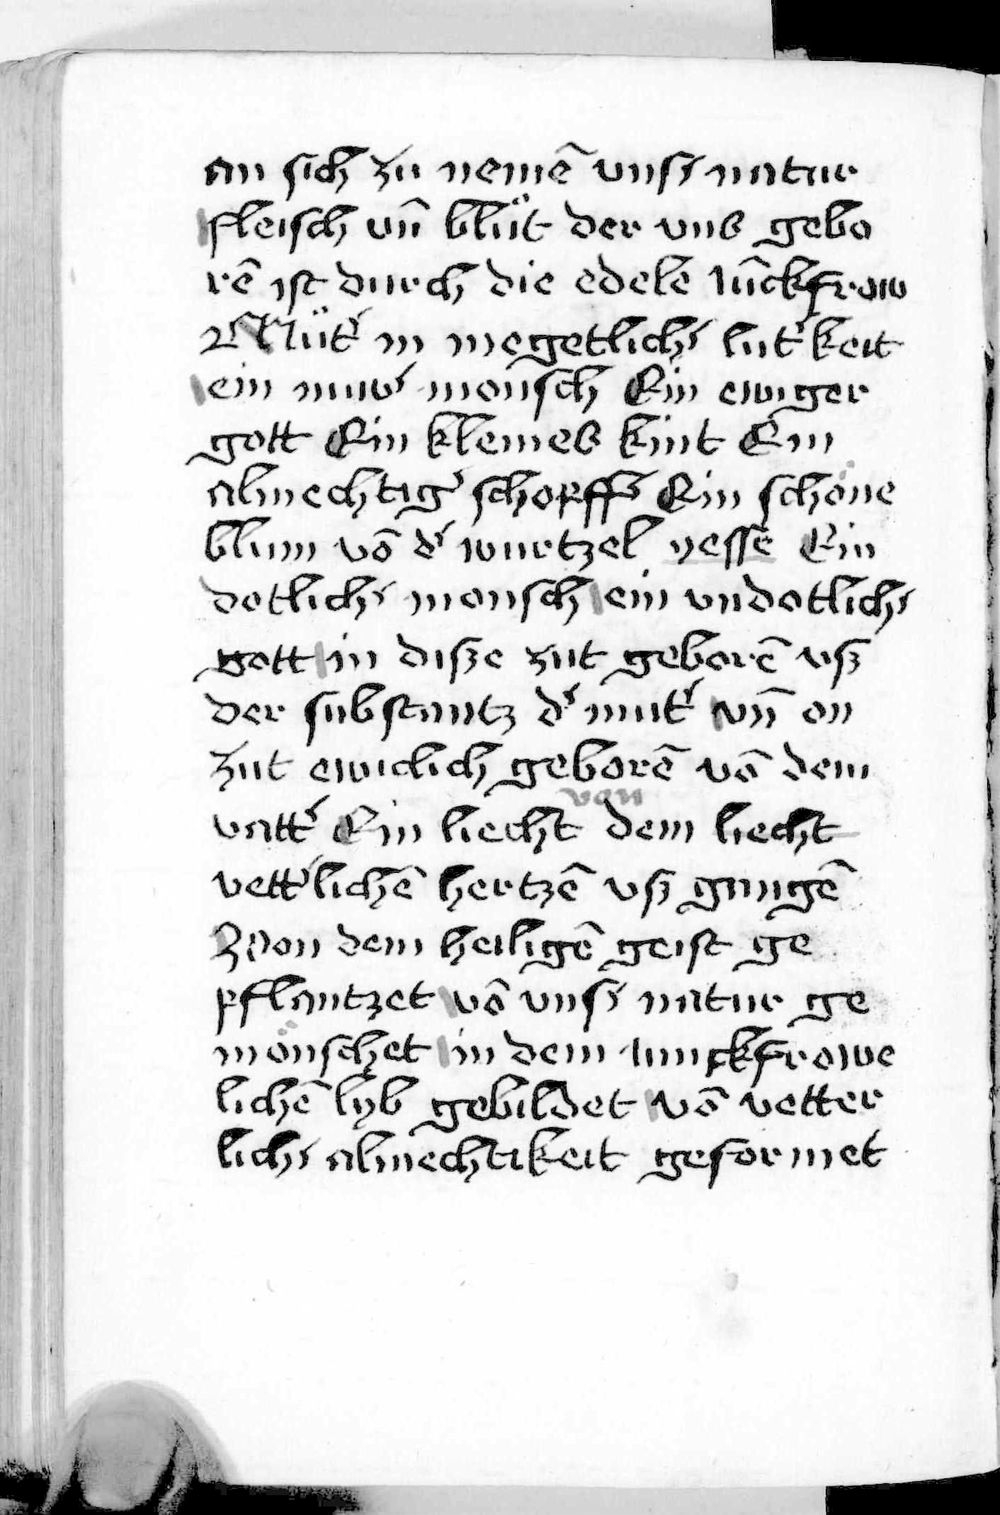 an sich zu nemē vnsʾ natur
fleisch vn̄ blüt der vns gebo
rē ist durch die edele iūckfrow
Mütʾ in megetlichʾ lutʾkeit
ein nuwʾ monsch Ein ewiger
gott Ein kleines kint Ein
almechtigʾ schopffʾ Ein schöne
blum vō dʾ wurtzel yesse Ein
dotlichʾ monsch ein vndotlichʾ
gott in disze zit geborē vsz
der substantz dʾ mutʾ vn̄ on
zit ewiclich geborē vō dem
von
vattʾ Ein liecht dem liecht
vettʾlichē hertzē vsz gangē
Von dem heiligē geist ge
pflantzet vō vnsʾ natur ge
mönschet in dem iunckfrowe
lichē lyb gebildet vō vetter
lichʾ almechtikeit geformet